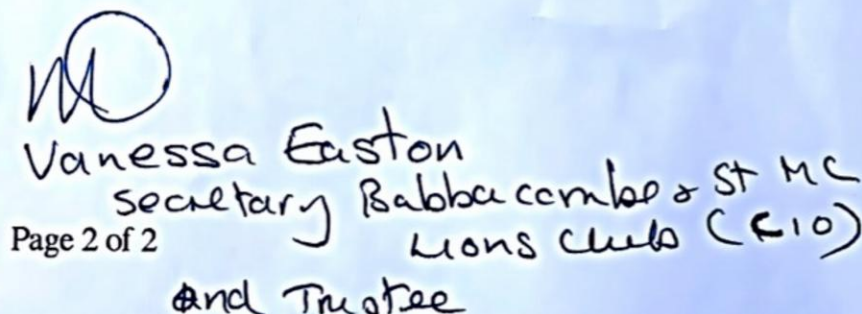 Vanessa Easton
Secretary Babbacombe & St MC
Page 2 of 2
Lions Club (CIO)
and Trustee